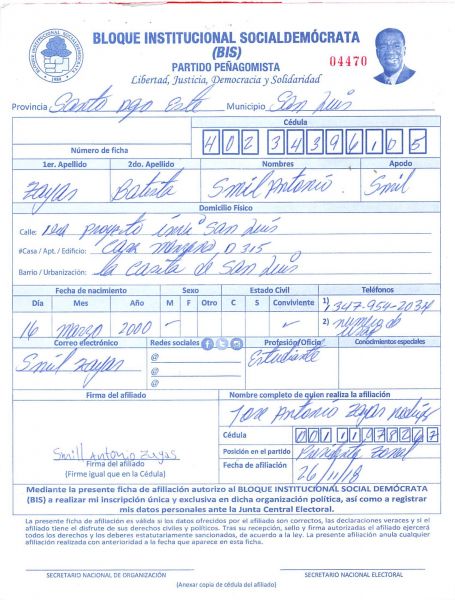 BLOQUE INSTITUCIONAL SOCIALDEMÓCRATA
(BIS)
PARTIDO PEÑAGOMISTA
04470
Libertad, Justicia, Democracia y Solidaridad
Provincia Santo Dgo Este Municipio San Luis
Cédula
Número de ficha 402 3439610 5
1er. Apellido 2do. Apellido Nombres Apodo
Zayas Batista Smil Antonio. Smil
Domicilio Físico
Calle: San Luis
#Casa / Apt. / Edificio: Casa D 315
Barrio / Urbanización: la Casita de San Luis
Fecha de nacimiento Sexo Estado Civil Teléfonos
Día Mes Año M F Otro C S Conviviente 1) 347-954-2034
16 Marzo 2000 2) numero de
Correo electrónico Redes sociales Profesión/Oficio Conocimientos especiales
Smil Zayas @ Estudiante
@
@
Firma del afiliado Nombre completo de quien realiza la afiliación
Jose Antonio Zayas
Cédula
001
Smill Antonio Zayas Posición en el partido Presidente Zonal
Firma del afiliado Fecha de afiliación
(Firme igual que en la Cédula) 26/11/18
Mediante la presente ficha de afiliación autorizo al BLOQUE INSTITUCIONAL SOCIAL DEMÓCRATA
(BIS) a realizar mi inscripción única y exclusiva en dicha organización política, así como a registrar
mis datos personales ante la Junta Central Electoral.
La presente ficha de afiliación es válida si los datos ofrecidos por el afiliado son correctos, las declaraciones veraces y si el
afiliado tiene el disfrute de sus derechos civiles y políticos. Tras su recepción, sello y firma autorizadas el afiliado ejercerá
todos los derechos y los deberes estatutariamente sancionados, de acuerdo a la ley. La presente afiliación anula cualquier
afiliación realizada con anterioridad a la fecha que aparece en esta ficha.
SECRETARIO NACIONAL DE ORGANIZACIÓN SECRETARIO NACIONAL ELECTORAL
(Anexar copia de cédula del afiliado)